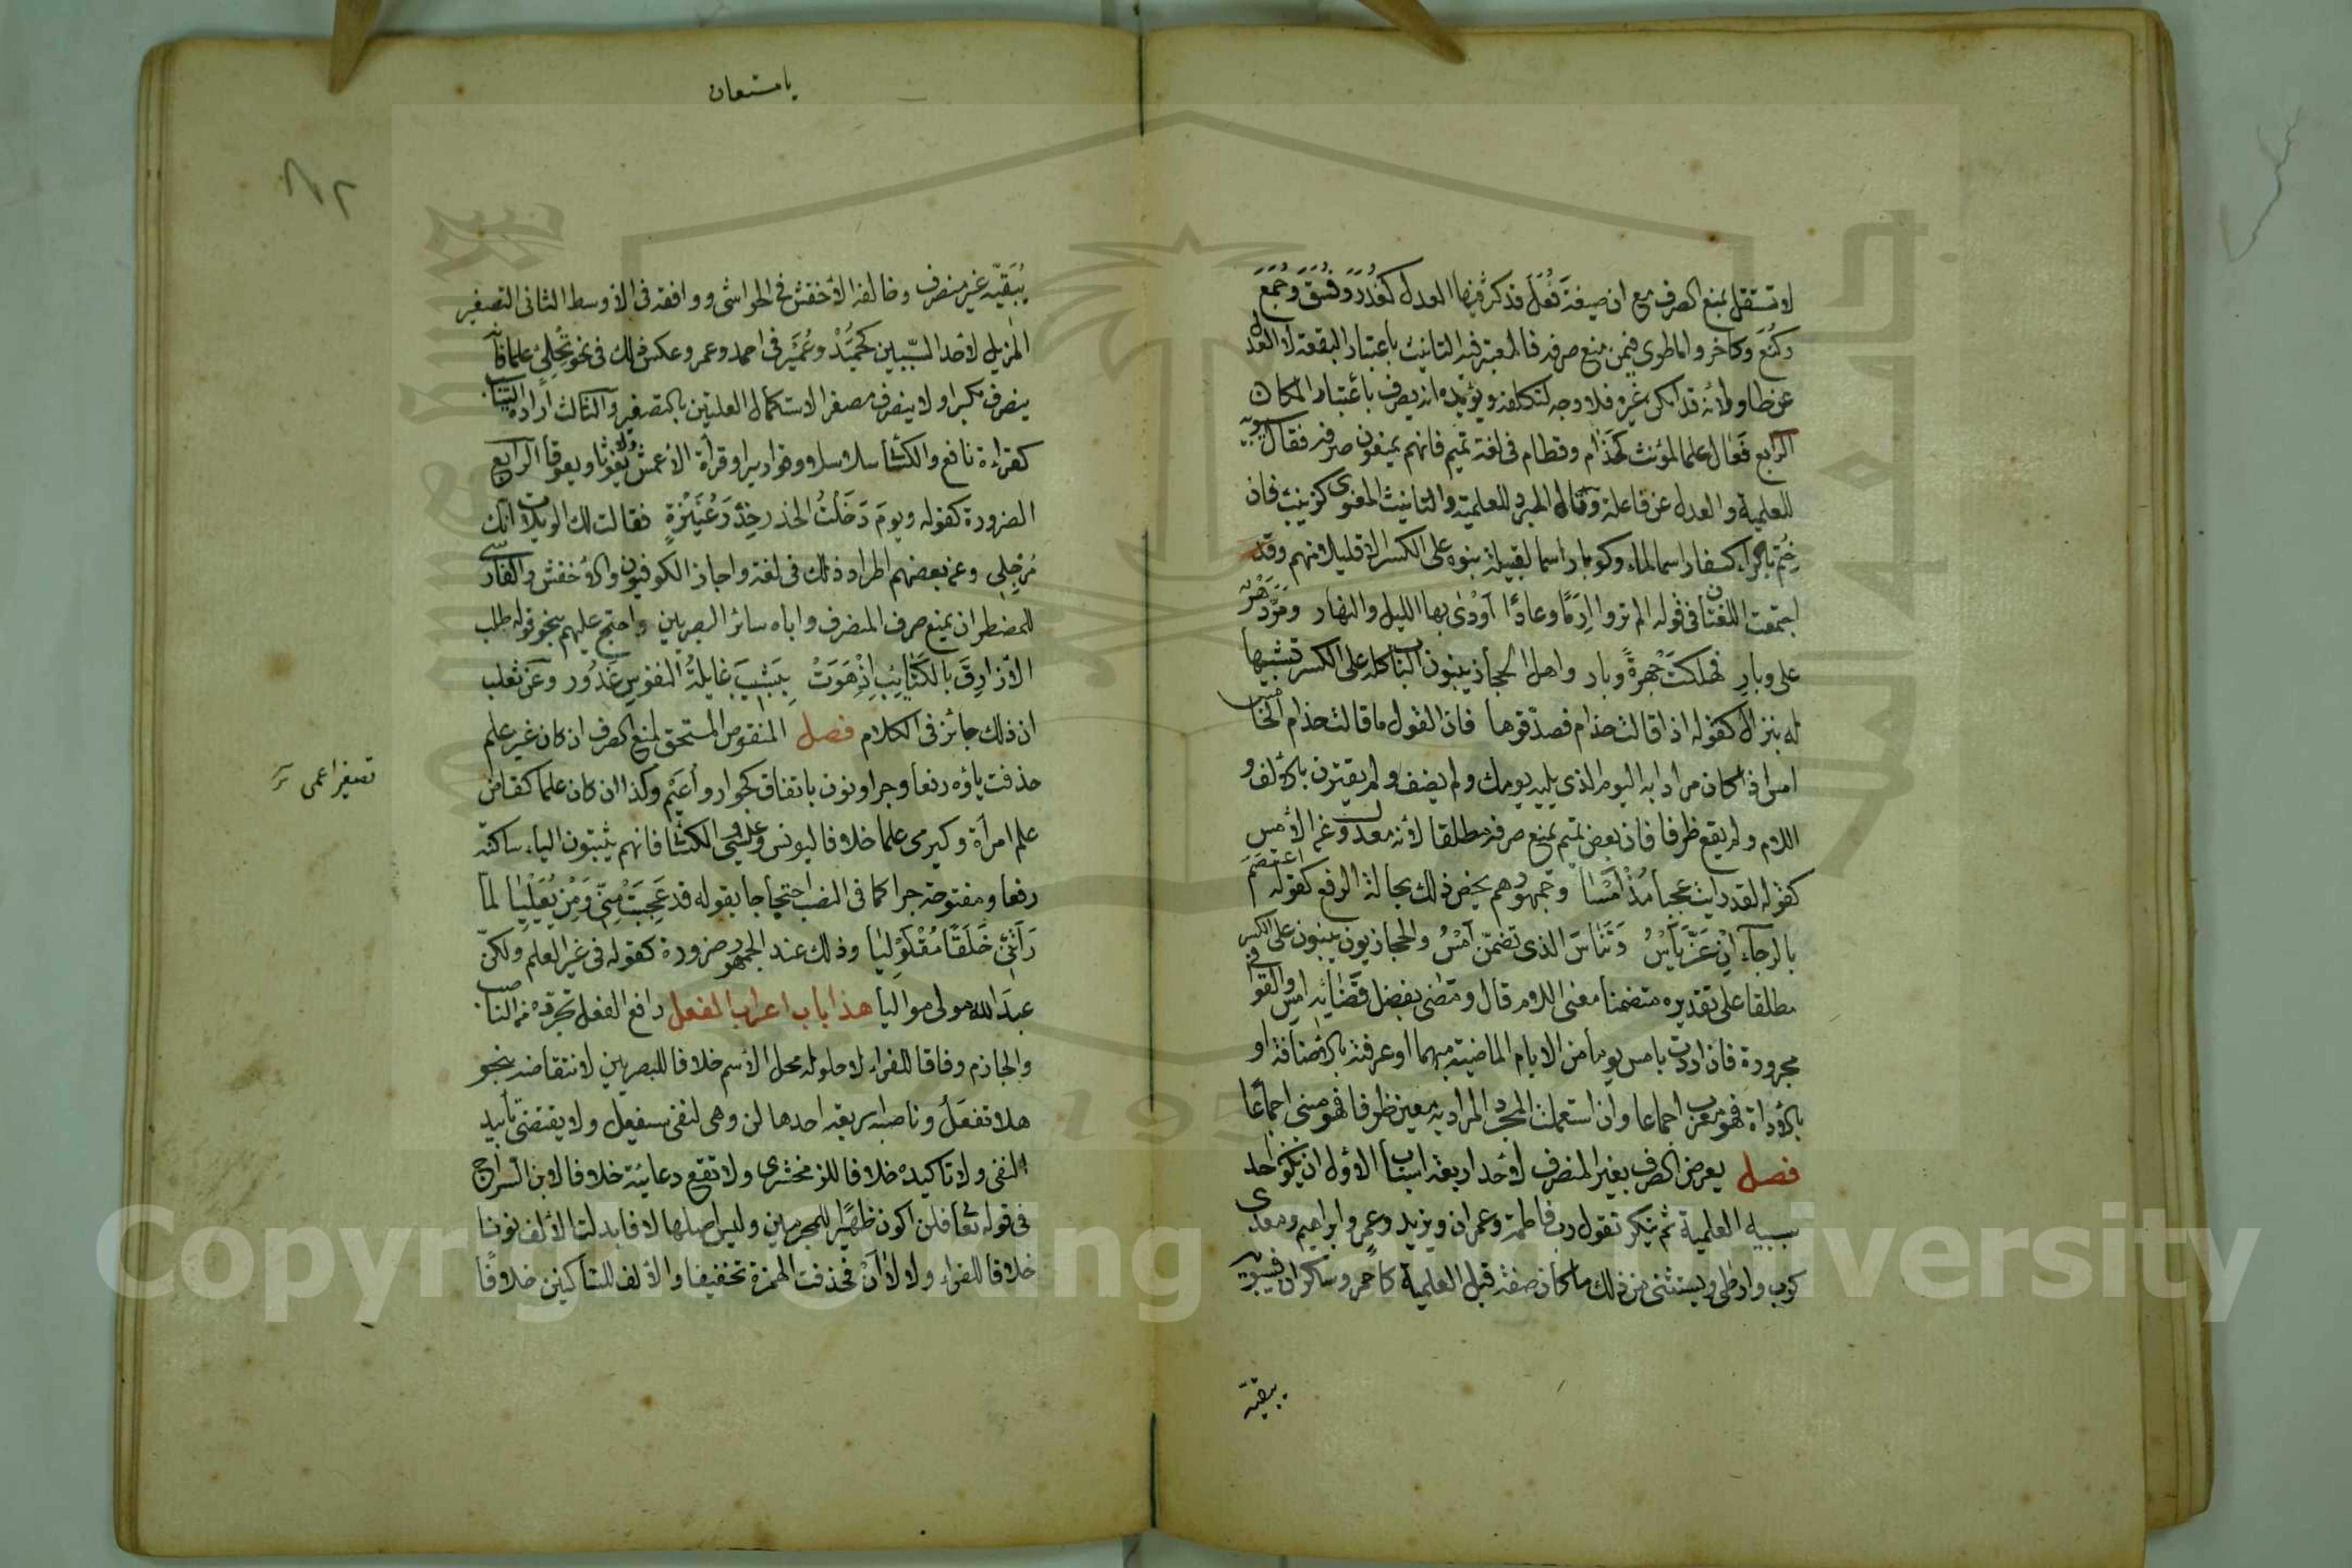 لا تستقل بمنع الصرف مع ان صيغة فُعَل قد كثر فيها العدل كغُدَر وفُسَق وجُمَع
وكُتَع وكأخر واما طوى فيمن منع صرفه فالمعتبر فيه التانيث باعتبار البقعة لا العدل
عن طاو لانه قد امكن غيره فلا وجه لتكلفه ويؤيده انه يصرف باعتبار المكان
الرابع فَعَال علما لمؤنث كحَذام وقطام في لغة تميم فانهم يمنعون صرفه فقال سيبويه
للعلمية والعدل عن فاعلة وقال المبرد للعلمية والتانيث المعنوى كزينب فان
خُتم بالراء كسفار اسما لماء وكوبار اسما لقبيلة بنوه على الكسر الا قليلا منهم وقد
اجتمعت اللغتان في قوله الم تروا اِرَمًا وعادًا اَوْدٰى بها الليل والنهار ومَرَّ دَهْرٌ
على وبارِ فهلكتْ جهرةً وبار واهل الحجاز يبنون الباب كله على الكسر تشبيها
له بنزال كقوله اذا قالت حذام فصدّقوها فان القول ما قالت حذام الخامس
امس اذا كان مرادا به اليوم الذى يليه يومك ولم يضف ولم يقترن بالألف و
اللام ولم يقع ظرفا فان بعض تميم يمنع صرفه مطلقا لأنه معدول عن الأمس
كقوله لقد رايت عجبا مُذْ اَمْسَا وجمهورهم يخص ذلك بحالة الرفع كقوله اعتصم
بالرجاء اِنْ عَنَّ يَأْسُ وَتَناسَ الذى تضمّن اَمْسُ والحجازيون يبنون على الكسر
مطلقا على تقديره متضمنا معنى اللام قال ومضى بفضل قَضَائِه امسِ والقوافى
مجرورة فان اردت بامس يوما من الايام الماضية مبهما أو عرفته بالأضافة او
بالأداة فهو معرب اجماعا وان استعملت المجرد المراد به معين ظرفا فهو مبنى اجماعًا
فصل يعرض الصرف بغير المنصرف لأحد اربعة اسباب الاول ان يكون احد
سببيه العلمية ثم ينكر تقول رب فاطمة وعمران ويزيد وعمر وابراهيم ومعدى
كرب وارطى ويستثنى من ذلك ما كان صفة قبل العلمية كأحمر وسكران فسيبويه
يبقيه
يا مستعان
٨٢
يُبَقيّه غير منصرف وخالفه الأخفش في الحواشى ووافقه في الاوسط الثانى التصغير
المزيل لاحد السّببين كحُمَيْد وعُمَيْر في احمد وعمر وعكس ذلك في نحو تِحْلِئ علما فانه
ينصرف مكبرا ولا ينصرف مصغرا لاستكمال العلتين بالتصغير والثالث ارادة التناسب
كقراءة نافع والكسائى سلاسلا وقواريرا وقرأة الأعمش ولا يغوثا ويعوقا الرابع
الضرورة كقوله ويوم دَخَلْتُ الخدر خِدْرَ عُنَيْزَةٍ فقالت لك الويلات انك
مُرْجِلِى وعن بعضهم اطراد ذلك في لغة واجاز الكوفيون والأخفش والفارسى
للمضطر ان يمنع صرف المنصرف واباه سائر البصريين واحتج عليهم بنحو قوله طلب
الاَزارِقَ بالكَتَايِبِ اِذْ هَوَتْ بِشَبِيبَ غايلةُ النفوسِ غَدُور وعن ثعلب
ان ذلك جائز في الكلام فصل المنقوص المستحق لمنع الصرف ان كان غير علم
حذفت ياؤه رفعا وجرا ونون باتفاق كجوار وأُعَيْمٍ وكذا ان كان علما كقاض
تصغير اعمى
علم امرأة وكيرمى علما خلافا ليونس وعيسى والكسائى فانهم يثبتون الياء ساكنة
رفعا ومفتوحة جرا كما في النصب احتجاجا بقوله قد عَجِبَتْ مِنّى وَمِنْ يُعَيْلِيَا لمّا
رَأَتْنِى خَلَقًا مُقْلَوْلِيَا وذلك عند الجمهور ضرورة كقوله في غير العلم ولكنّ
عبدَ الله مولى مواليا هذا باب اعراب الفعل رافع الفعل تجرده من الناصب
والجازم وفاقا للفراء لا حلوله محل الأسم خلافا للبصريين لانتقاضه بنحو
هلا تفعل وناصبه اربعة احدها لن وهى لنفى سيفعل ولا يقتضى تأبيد
النفى ولا تاكيده خلافا للزمخشرى ولا تقع دعائية خلافا لابن السراج
في قوله تعا فلن اكون ظهيًرا للمجرمين وليس اصلها لا فابدلت الألف نونا
خلافا للفراء ولا لا اَنْ فحذفت الهمزة تخفيفا والألف للساكنين خلافًا
Copyright © King Saud University
1957